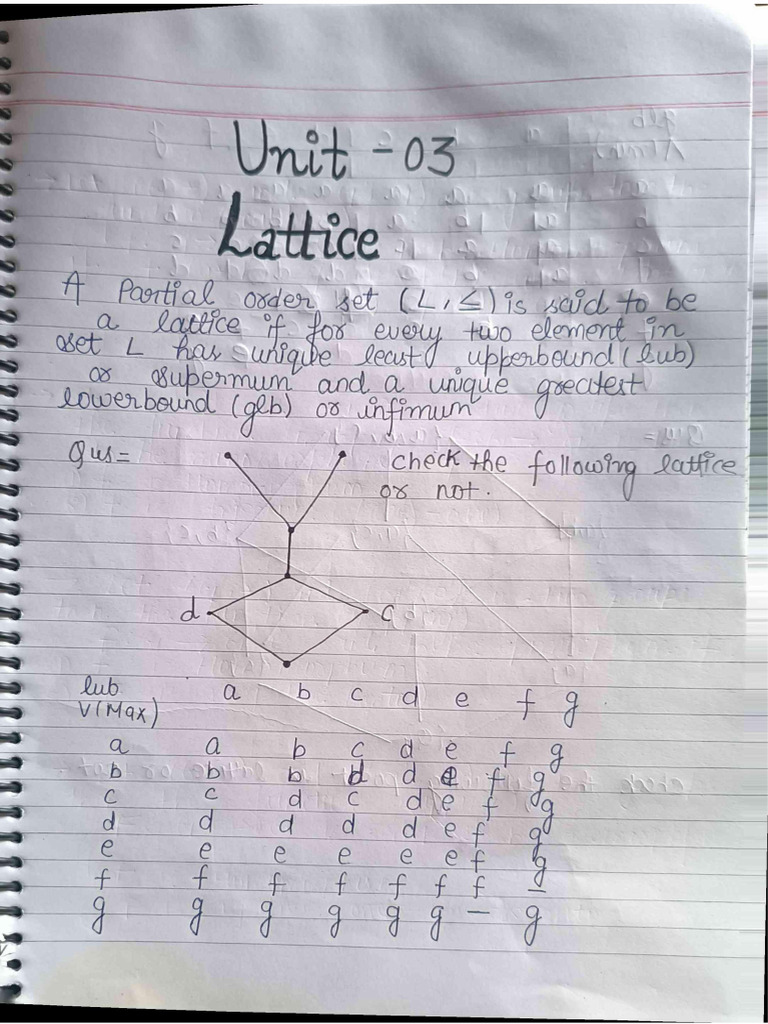 Unit - 03
Lattice
A Partial order set (L, ≤) is said to be
a lattice if for every two element in
set L has unique least upperbound (lub)
or supermum and a unique greatest
lowerbound (glb) or infimum
Qus = check the following lattice
or not.
d c
lub a b c d e f g
V(Max)
a a b c d e f g
b b b d d e f g
c c d c d e f g
d d d d d e f g
e e e e e e f g
f f f f f f f –
g g g g g g – g